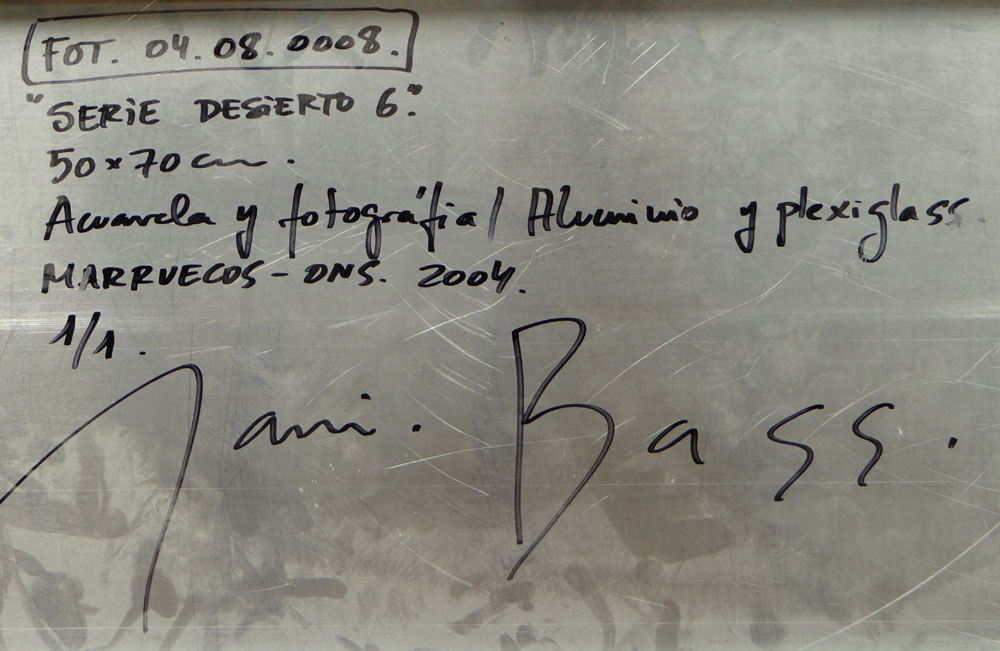 FOT. 04.08.0008.
"SERiE DESiERTO 6".
50x70 cm.
Acuarela y fotográfia / Aluminio y plexiglass.
MARRUECOS - ONS. 2004.
1/1.
Jani. Bass.